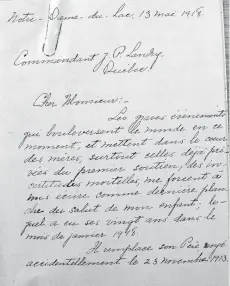 Notre-Dame-du-Lac, 13 mai 1918.
Commandant J. P. Landry,
Québec.
Cher Monsieur:-
Les graves événements
qui bouleversent le monde en ce
moment, et mettent dans le cœur
des mères, surtout celles déjà pri-
vées du premier soutien, des in-
certitudes mortelles, me forcent à
vous écrire comme dernière plan-
che du salut de mon enfant; le-
quel a eu ses vingt ans dans le
mois de janvier 1918.
Il remplace son Père
accidentellement le 23 novembre 1913.